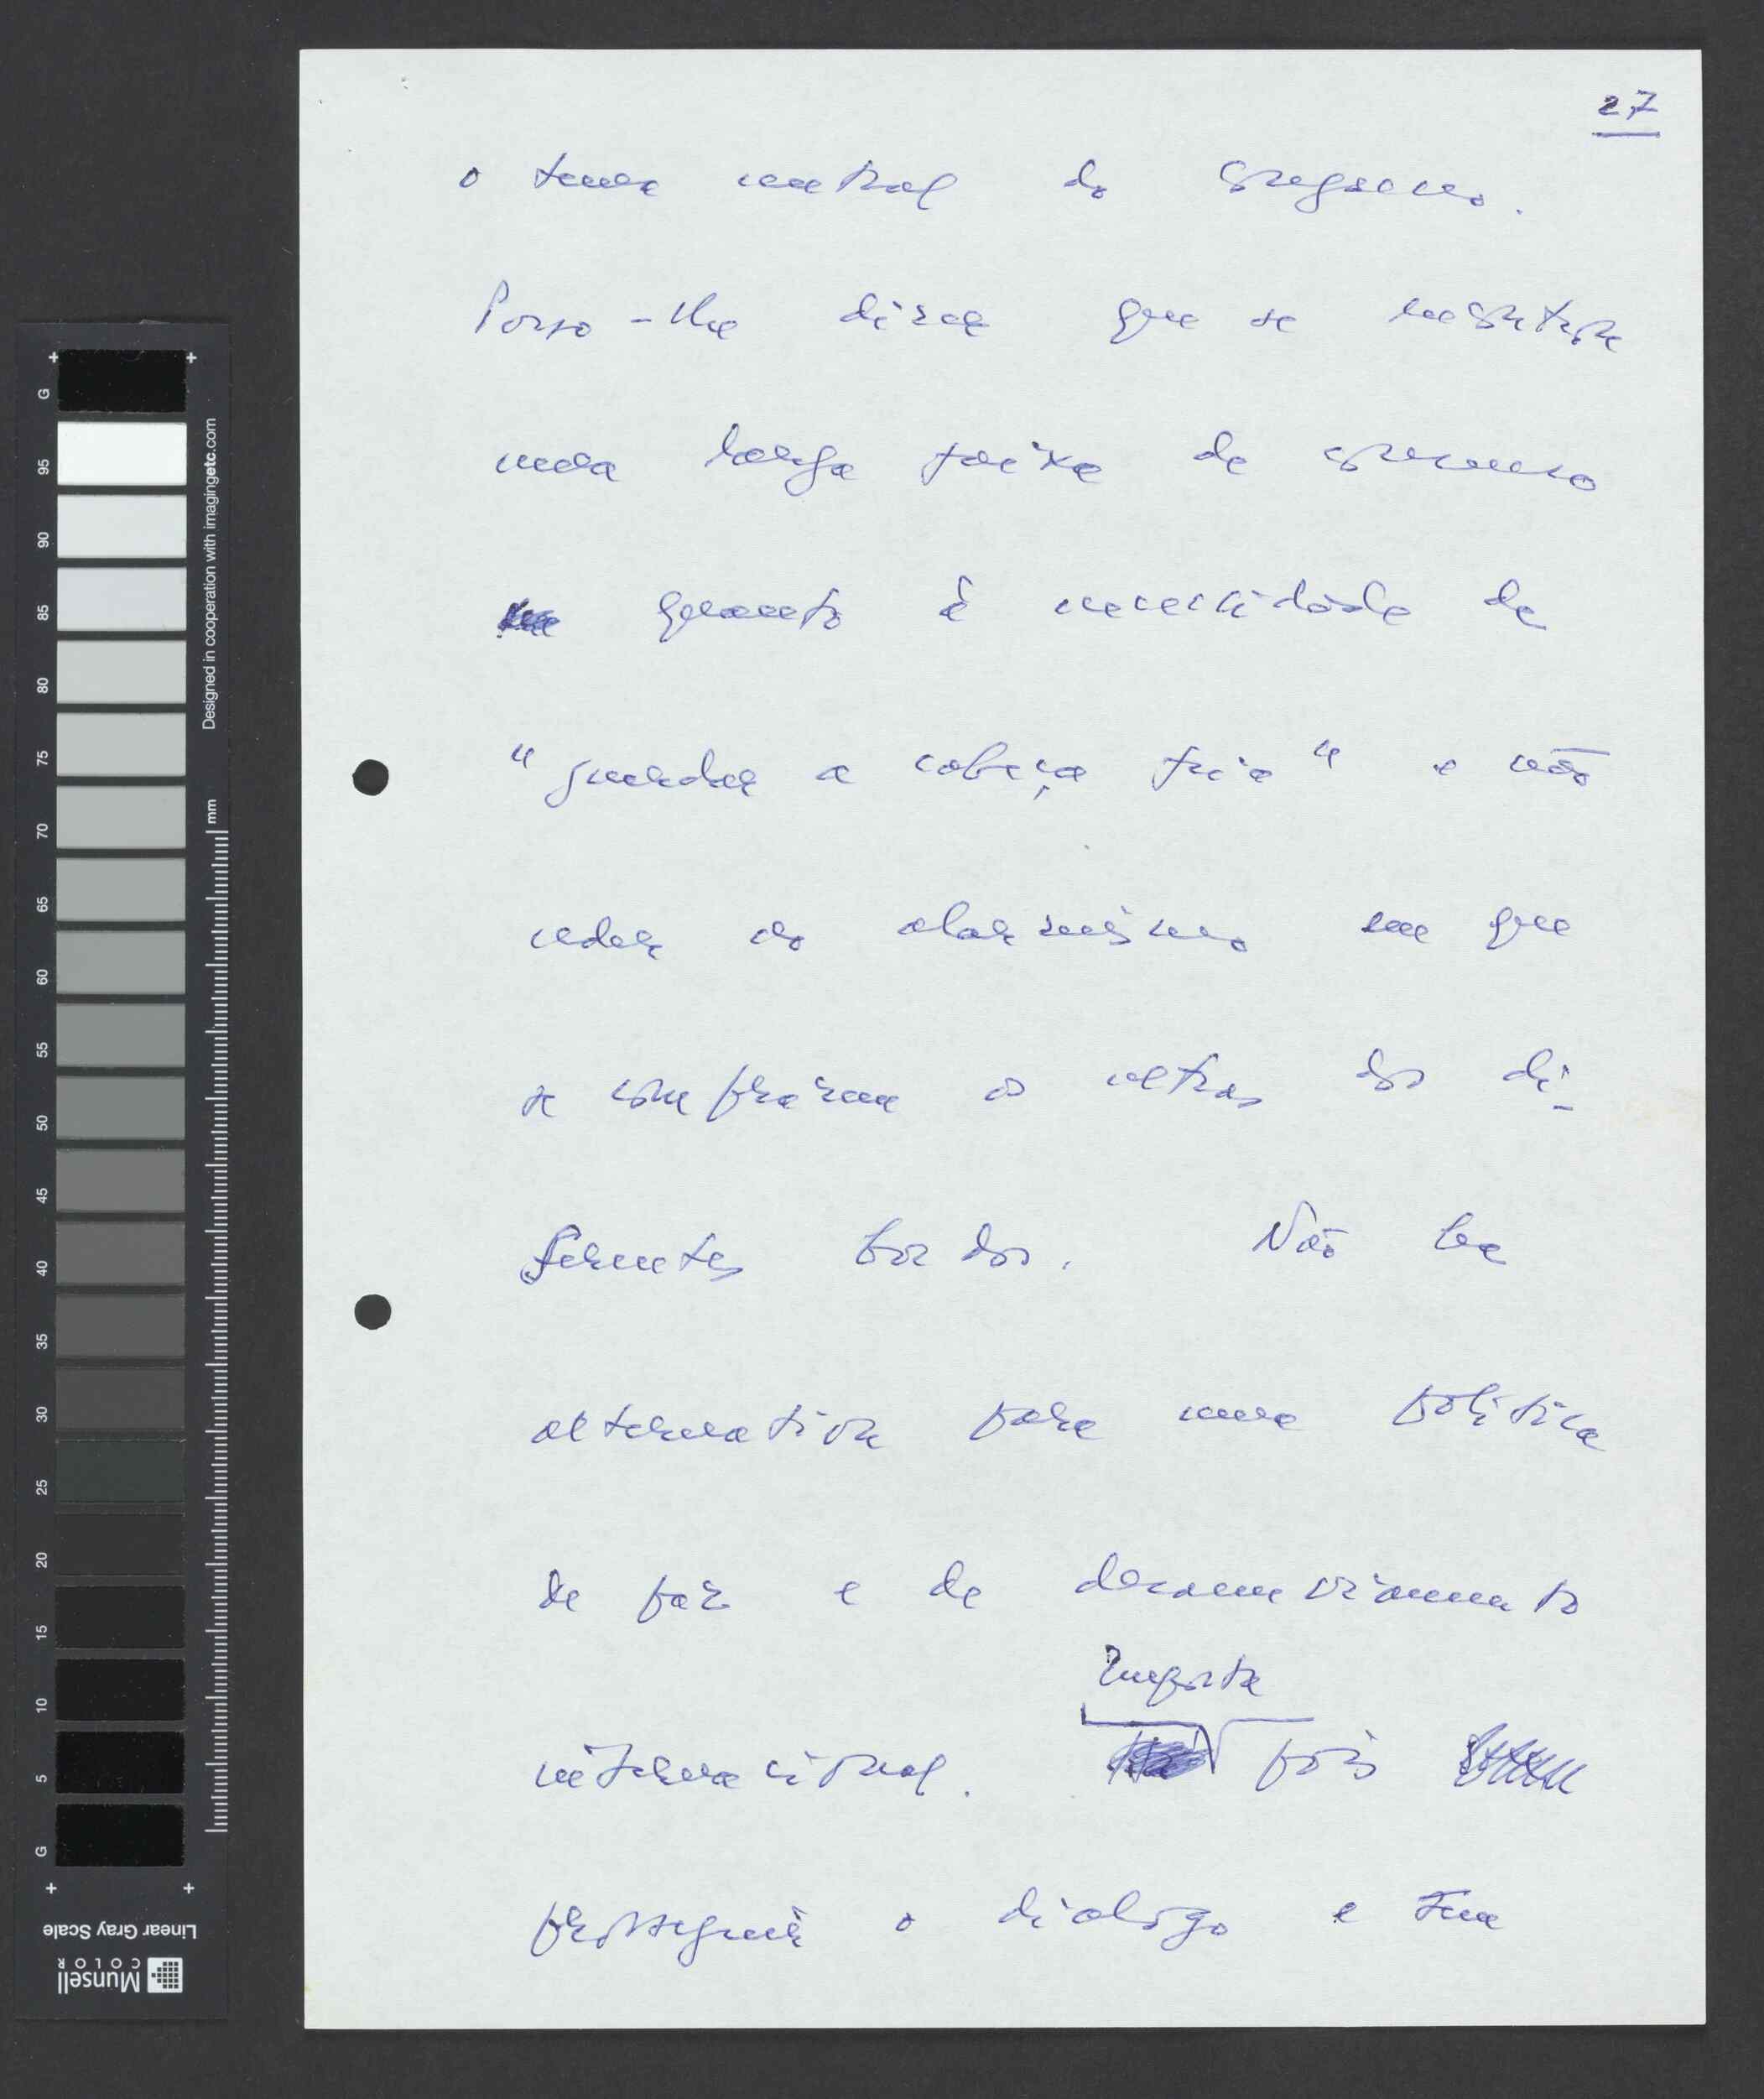 27
o tema central do Congresso.
Posso-lhe dizer que se registou
uma larga faixa de consenso
quanto à necessidade de
"guardar a cabeça fria" e não
ceder ao alarmismo em que
se comprazem os ultras dos di-
ferentes bordos. Não ha
alternativa para uma política
de paz e de desanuviamento
Importa
internacional. pois
prosseguir o dialogo e
G 95 90 85 80 75 70 65 60 55 50 45 40 35 30 25 20 15 10 5 G
mm
Designed in cooperation with imagingetc.com
Linear Gray Scale
Munsell
COLOR